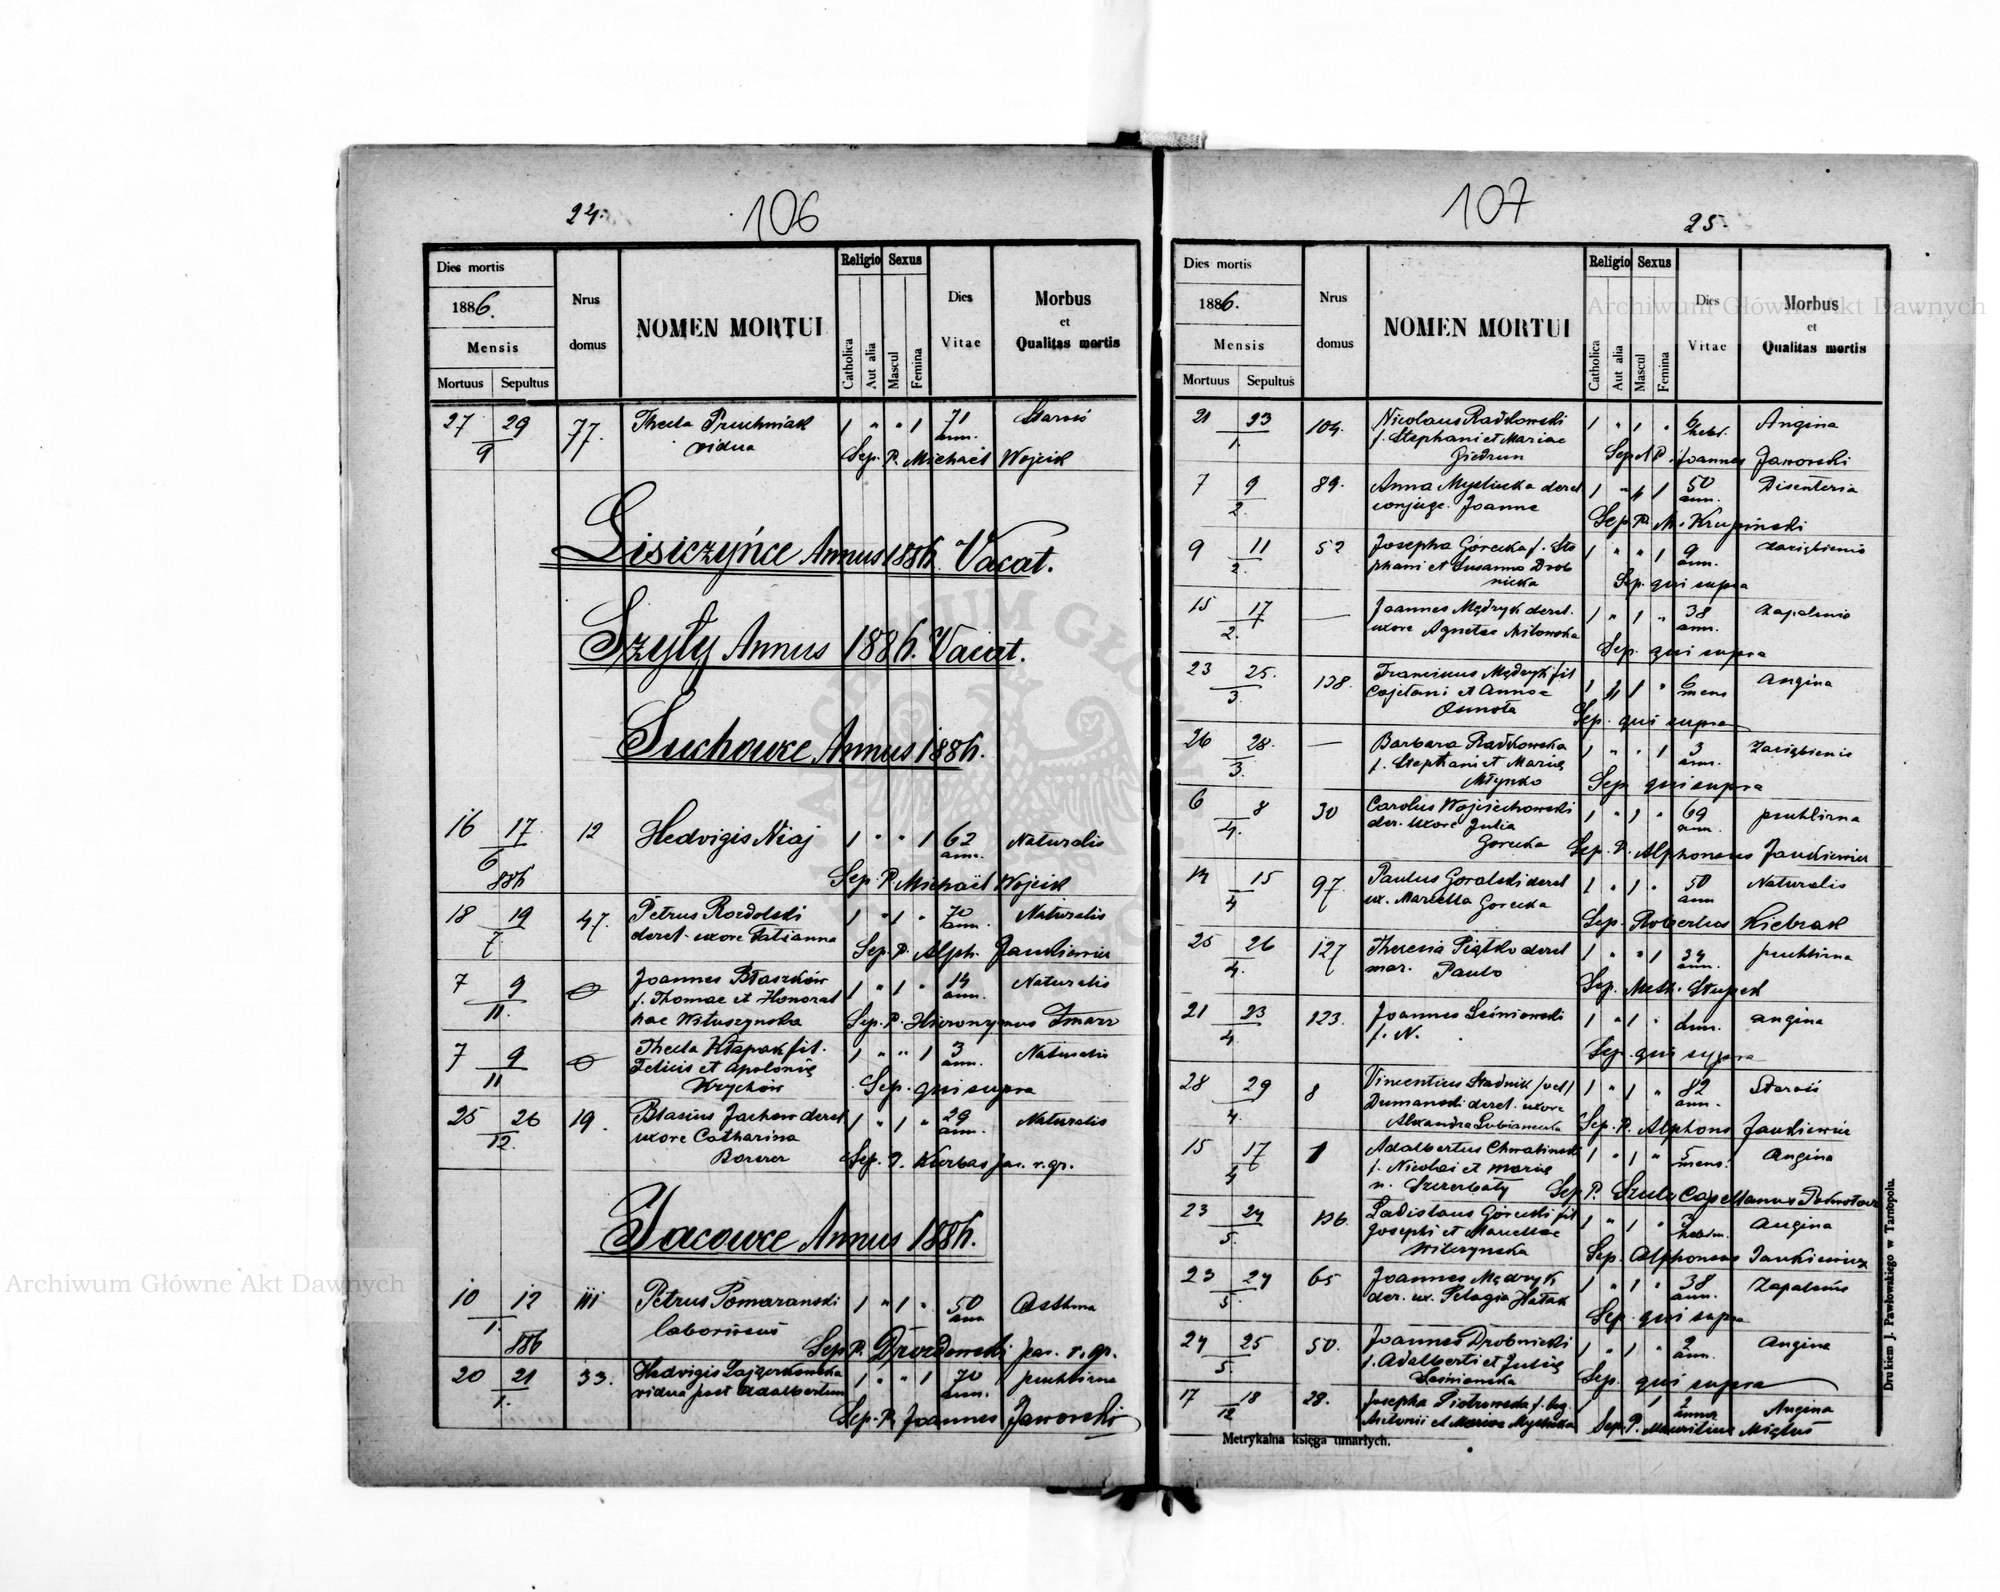 24. 106
Dies mortis
1886.
Mensis
Mortuus Sepultus
Nrus domus
NOMEN MORTUI
Religio
Catholica
Aut alia
Sexus
Mascul
Femina
Dies Vitae
Morbus
et
Qualitas mortis
27 29 77. Thecla Pruchniak 1 " " 1 71 Starość
9 vidua ann.
Sep. P. Michaël Wojcik
Lisiczyńce Annus 1886. Vacat.
Szyły Annus 1886. Vacat.
Suchowce Annus 1886.
16 17. 12 Hedvigis Niaj 1 " " 1 62 Naturalis
6 ann.
886 Sep. P. Michaël Wojcik
18 19 47. Petrus Rozdolski 1 " 1 " 70 Naturalis
7 derel. uxore Tatianna ann.
Sep. P. Alph. Jankiewicz
7 9 Joannes Błaszków 1 " 1 " 14 Naturalis
11. f. Thomae et Honorat ann.
hae Witaszynska Sep. P. Hieronymus
7 9 Thecla Kłapak fil. 1 " " 1 3 Naturalis
11 Felicis et Apolonię ann.
Krychów Sep. qui supra
25 26 19. Blasius Jachow derel 1 " 1 " 29 Naturalis
12. uxore Catharina ann.
Sep. P. Kurbas par. r. gr.
Jacowce Annus 1886.
10 12 111 Petrus Pomaranski 1 " 1 " 50 Asthma
1. ann
886 Sep. P. Drozdowski par. r. gr.
20 21 33. Hedvigis 1 " " 1 70 puchlina
1. vidua post Adalbertum ann.
Sep. P. Joannes Jaworski
107 25.
Dies mortis
1886.
Mensis
Mortuus Sepultus
Nrus domus
NOMEN MORTUI
Religio
Catholica
Aut alia
Sexus
Mascul
Femina
Dies Vitae
Morbus
et
Qualitas mortis
21 23 104. Nicolaus Radkowski 1 " 1 " 6 Angina
1. f. Stephani et Mariae hebd.
Giedrun Sep. P. Joannes Jaworski
7 9 89. Anna Myslicka derel 1 " 1 50 Disenteria
2. conjuge. Joanne ann.
Sep. P. M. Krupinski
9 11 52 Josepha Górecka f. Ste 1 " " 1 9 zaziębienie
2. phani et Susanna Drob ann.
nicka Sep. qui supra
15 17 — Joannes Mędryk derel. 1 " 1 " 38 Zapalenie
2. uxore Agnetae Miłowska ann.
Sep. qui supra
23 25. 138. Franciscus Mędryk fil 1 " 1 " 6 Angina
3. Cajetani et Annae mens
Osmoła Sep. qui supra
26 28. — Barbara Radkowska 1 " " 1 3 Zaziębienie
3. f. Stephani et Marię ann.
Młynko Sep. qui supra
6 8 30 Carolus Wojciechowski 1 " 1 " 69 puchlina
4. der. uxore Julia ann.
Gorecka Sep. P. Alphonsus Jankiewicz
14 15 97. Paulus Goralski derel 1 " 1 " 50 Naturalis
4 ux. Marcella Gorecka ann
Sep. Robertus Kiebzak
25 26 127 Theresia Piątko derel 1 " " 1 34 puchlina
4. mar. Paulo ann.
Sep. Meth. Słupek
21 23 123. Joannes Leśniowski 1 " 1 " angina
4. f. N. ann.
Sep. qui supra
28 29 8 Vincentius Stadnik /vel/ 1 " 1 " 82 Starość
4. Dumanski derel. uxore ann.
Alexandra Sep. P. Alphons Jankiewicz
15 17 1 Adalbertus Chwalinski 1 " 1 " 5 Angina
f. Nicolai et Marię mens.
n. Szczerbaty Sep. P. Capellanus
23 24 136. Ladislaus Górecki fil 1 " 1 " 3 Angina
5. Josephi et Marcellae hebdm.
Wilczynska Sep. Alphonsus Jankiewicz
23 24 65 Joannes Mędryk 1 " 1 " 38 Zapalenie
5. der. ux. Pelagia Hałak ann.
Sep. qui supra
24 25 50. Joannes Drobnicki 1 " 1 " 2 Angina
5. f. Adalberti et Julię ann.
Leśniowska Sep. qui supra
17 18 28. Josepha Piotrowska f. leg. 1 1 2 Angina
12 Antonii et Mariae Myslicka annor
Sep. P. Mauritius Miętus
Metrykalna księga umarłych.
Drukiem J. Pawłowskiego w Tarnopolu.
Archiwum Główne Akt Dawnych
Archiwum Główne Akt Dawnych